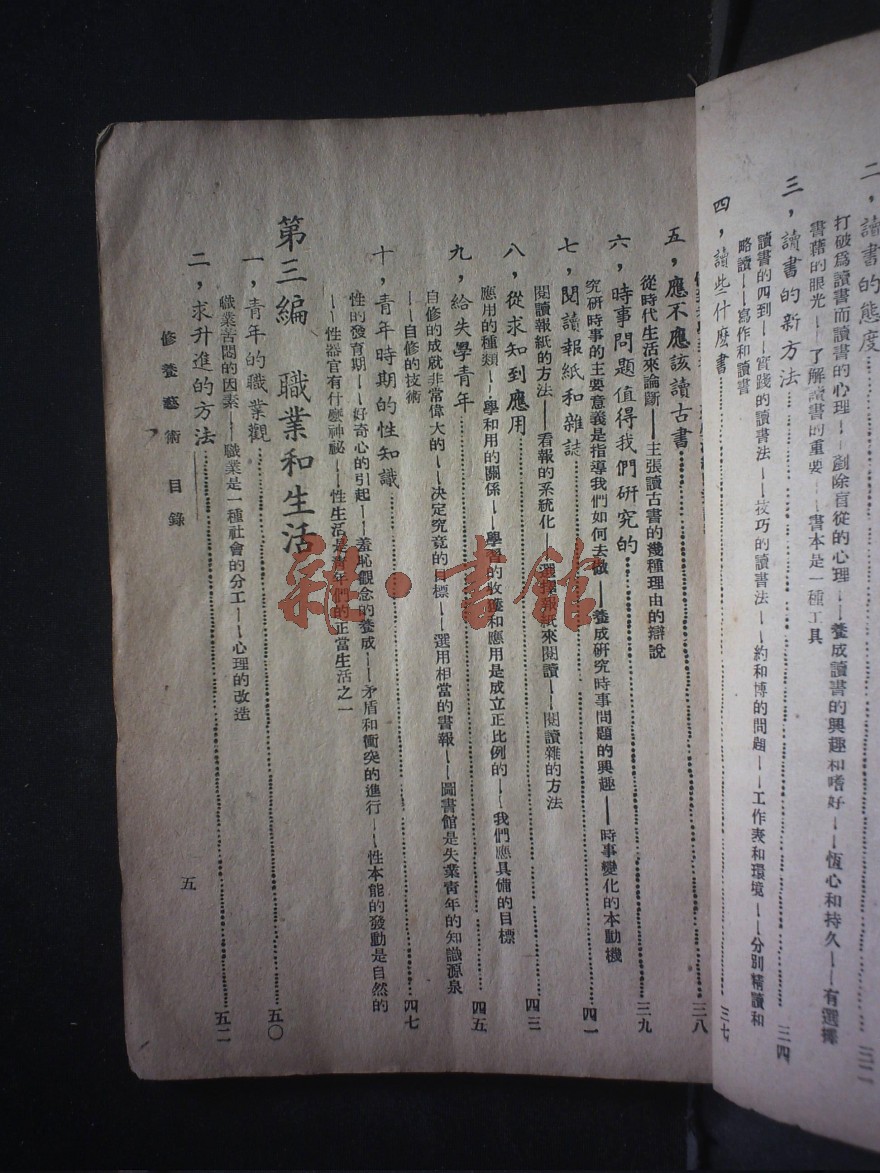 二，讀書的態度……三二
打破爲讀書而讀書的心理——剷除盲從的心理——養成讀書的興趣和嗜好——恆心和持久——有選擇
書藉的眼光——了解讀書的重要——書本是一種工具
三，讀書的新方法……三四
讀書的四到——實踐的讀書法——技巧的讀書法——約和博的問題——工作表和環境——分別精讀和
略讀——寫作和讀書
四，讀些什麼書……三七
五，應不應該讀古書……三八
從時代生活來論斷——主張讀古書的幾種理由的辯說
六，時事問題值得我們研究的……三九
究研時事的主要意義是指導我們如何去做——養成研究時事問題的興趣——時事變化的本動機
七，閱讀報紙和雜誌……四一
閱讀報紙的方法——看報的系統化——選擇報紙來閱讀——閱讀雜的方法
八，從求知到應用……四三
應用的種類——學和用的關係——學習的收穫和應用是成立正比例的——我們應具備的目標
九，給失學青年……四五
自修的成就非常偉大的——决定究竟的目標——選用相當的書報——圖書館是失業青年的知識源泉
——自修的技術
十，青年時期的性知識……四七
性的發育期——好奇心的引起——羞恥觀念的養成——矛盾和衝突的進行——性本能的發動是自然的
——性器官有什麼神祕——性生活是青年們的正當生活之一
第三編 職業和生活
一，青年的職業觀……五〇
職業苦悶的因素——職業是一種社會的分工——心理的改造
二，求升進的方法……五二
修養藝術 目錄
五
雜·書館